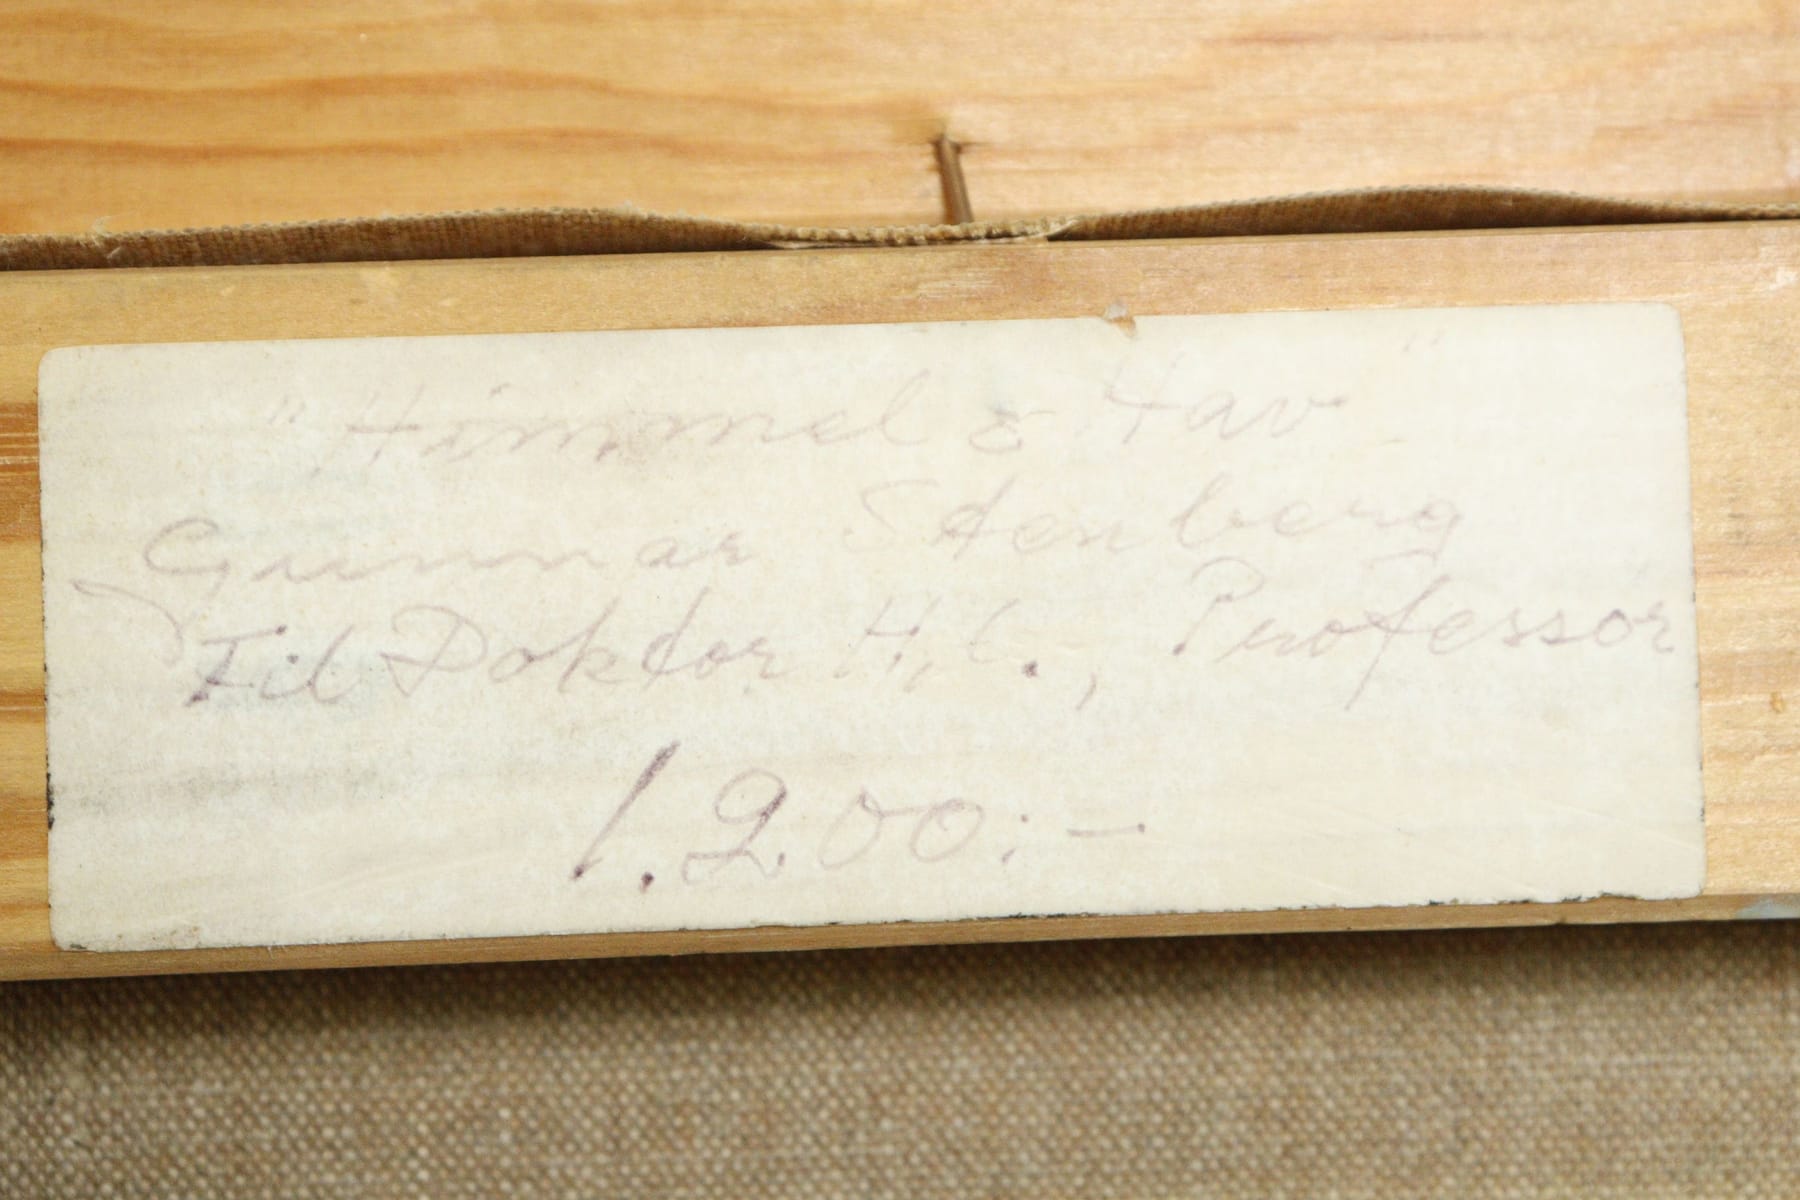 "Himmel & Hav"
Gunnar Stenberg
Fil Doktor H.C., Professor
1.200:-